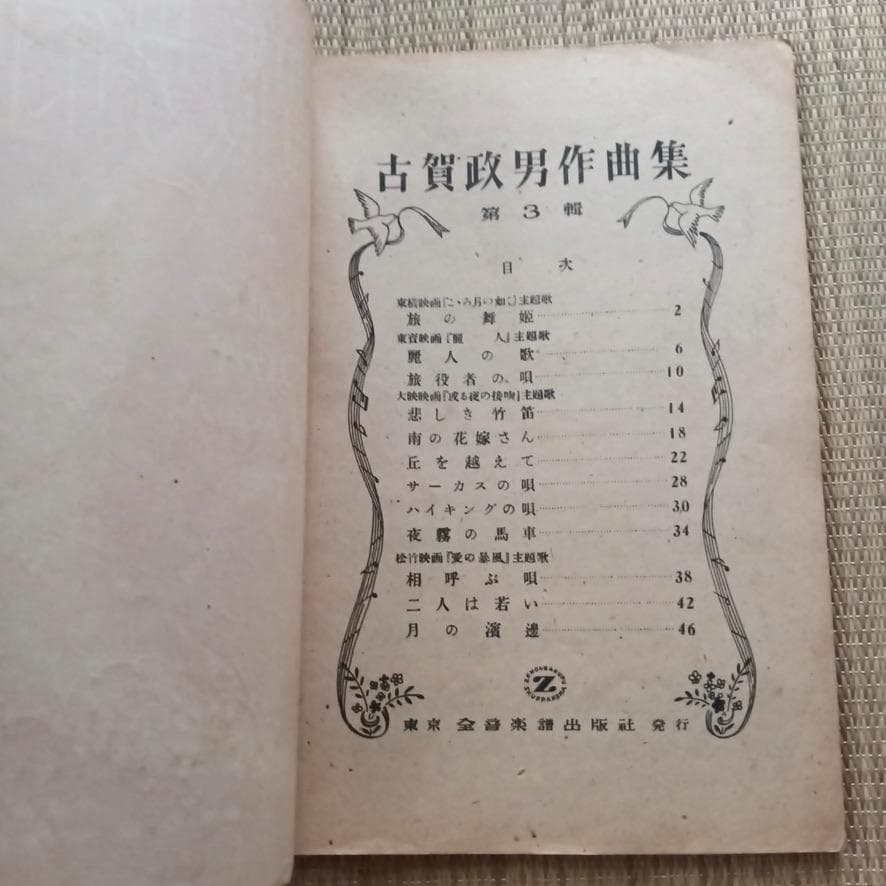 古賀政男作曲集
第3輯
目次
東横映画『こゝろ月の如く』主題歌
旅の舞姫 2
東宝映画『麗人』主題歌
麗人の歌 6
旅役者の唄 10
大映映画『或る夜の接吻』主題歌
悲しき竹笛 14
南の花嫁さん 18
丘を越えて 22
サーカスの唄 28
ハイキングの唄 30
夜霧の馬車 34
松竹映画『愛の暴風』主題歌
相呼ぶ唄 38
二人は若い 42
月の濱邊 46
ZENONGAKUFU
Z
SHUPPANSHA
東京 全音楽譜出版社 発行